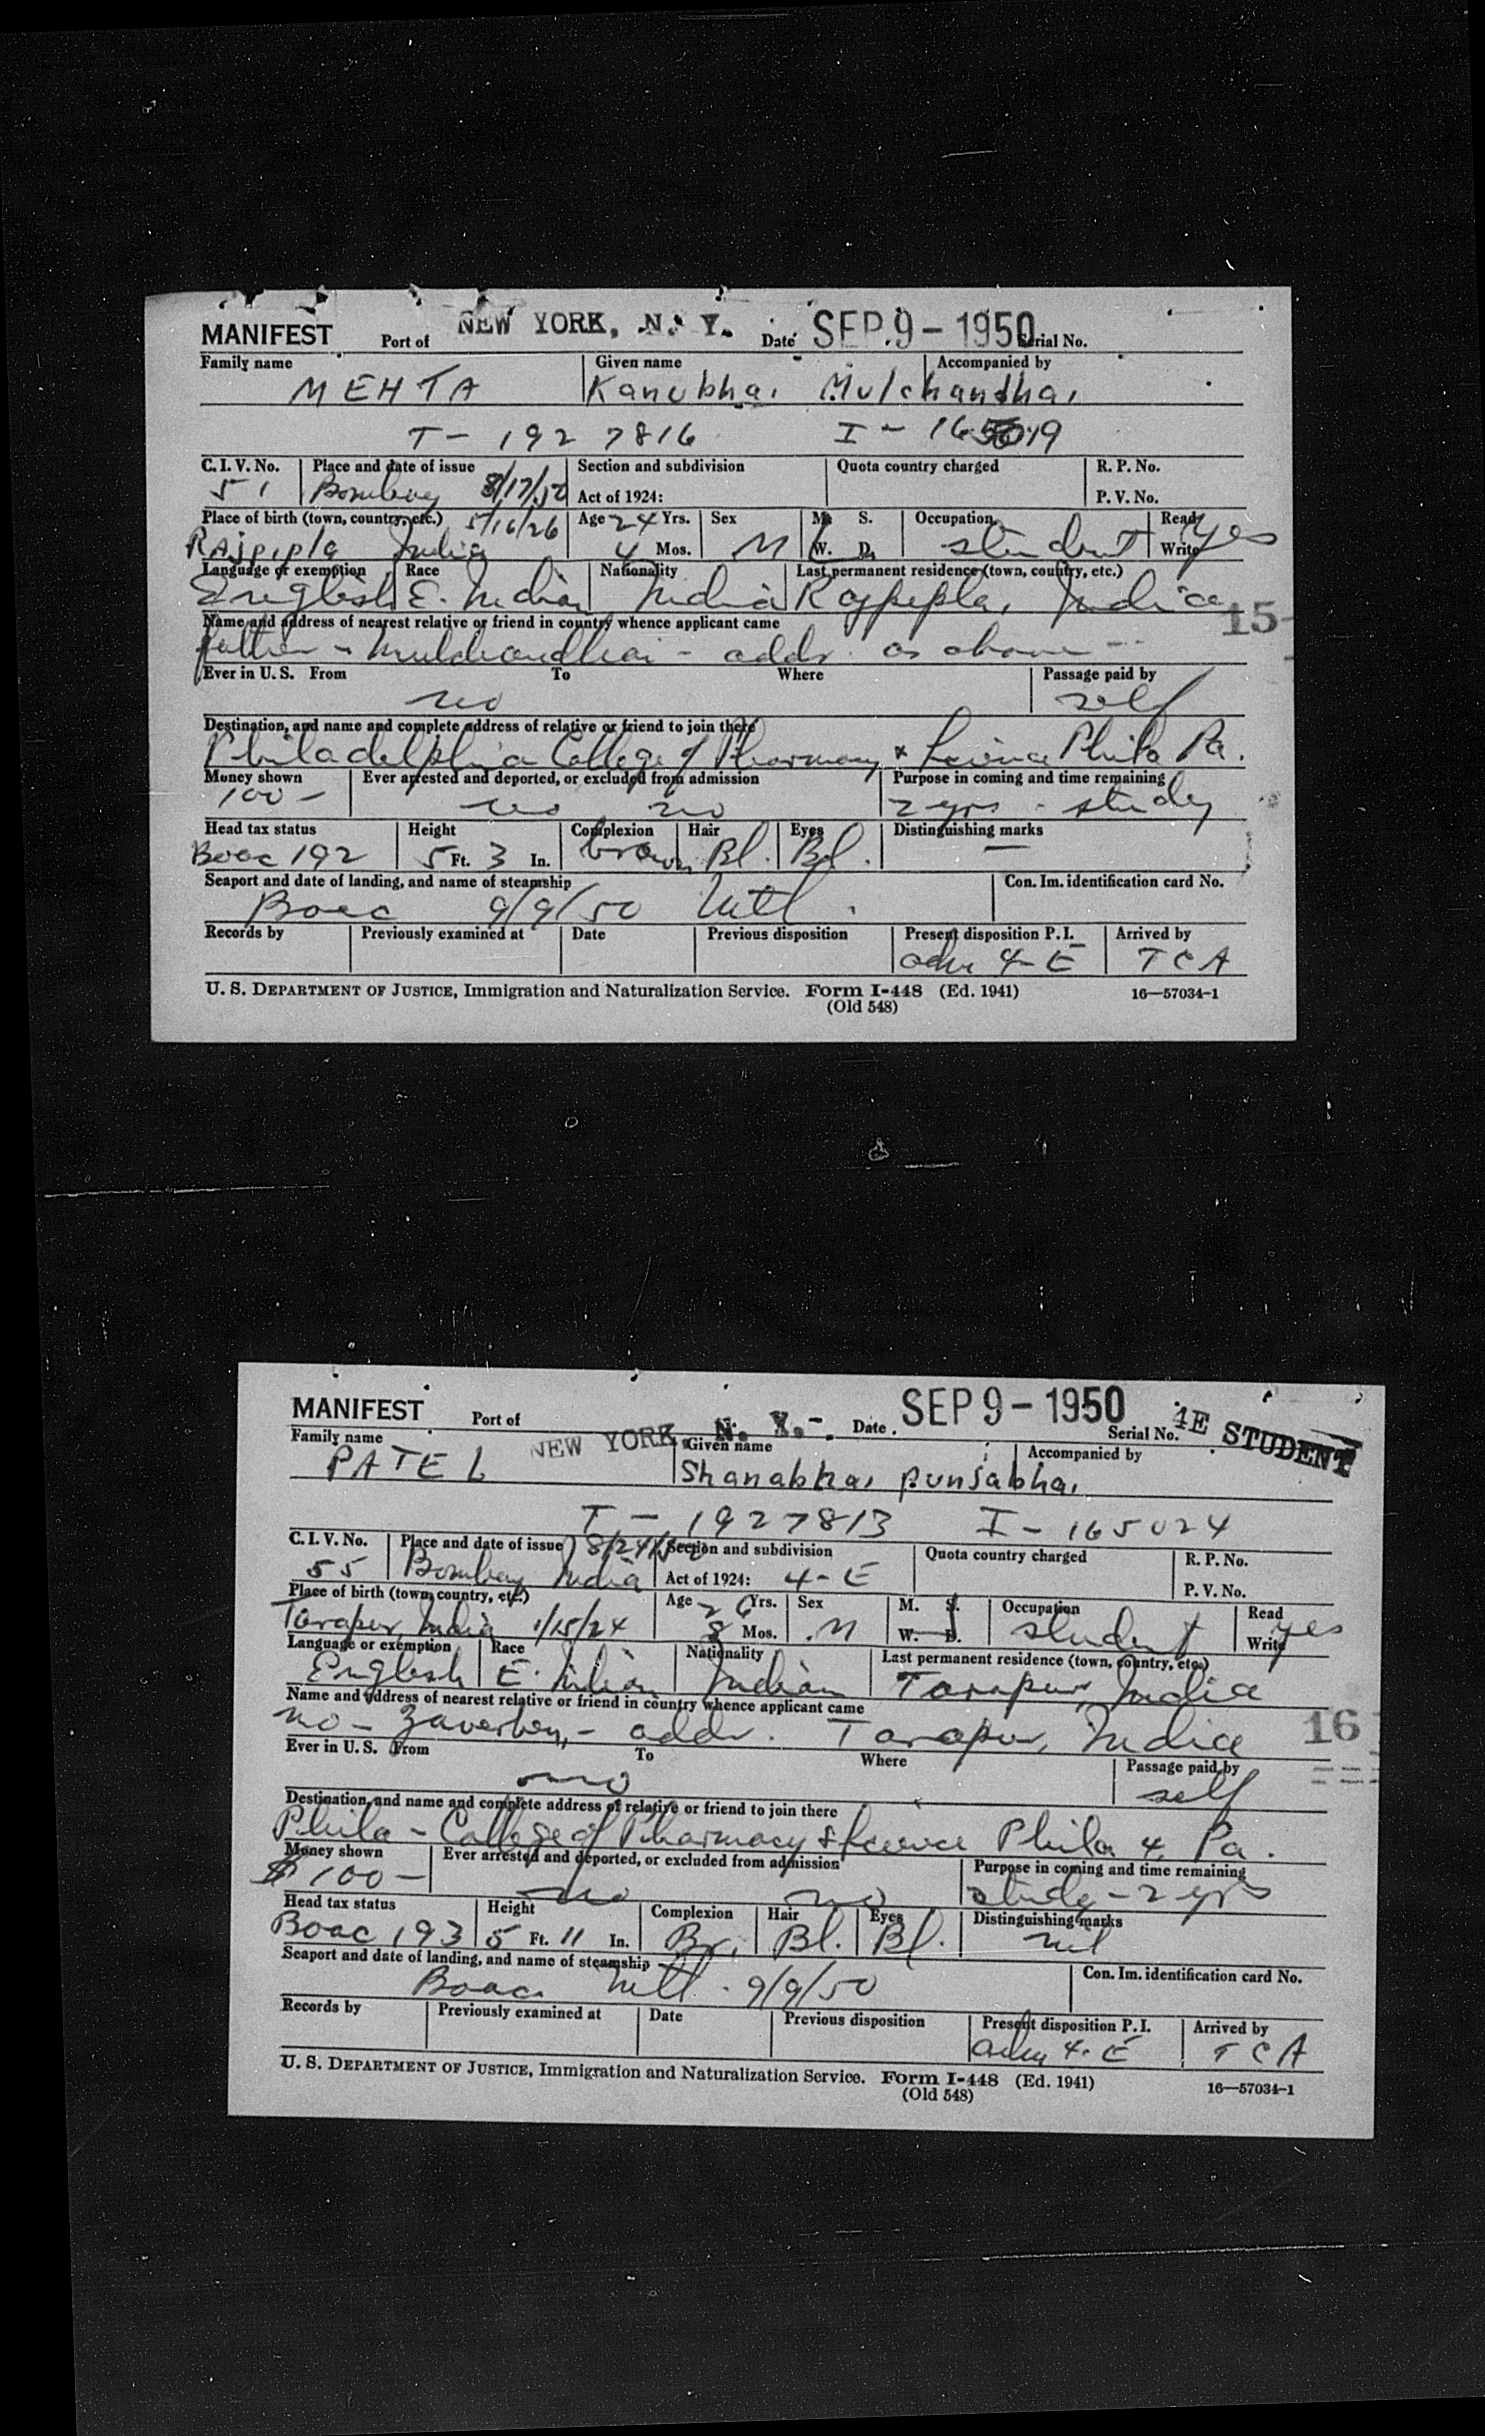 MANIFEST Port of NEW YORK, N. Y. Date SEP. 9 - 1950 Serial No.
Family name Given name Accompanied by
MEHTA Kanubhai Mulchandbhai
T - 192 7816 I - 165019
C. I. V. No. Place and date of issue Section and subdivision Quota country charged R. P. No.
51 Bombay 8/17/50 Act of 1924: P. V. No.
Place of birth (town, country, etc.) 5/16/26 Age 24 Yrs. Sex M. S. Occupation Read Yes
Rajpipla India 4 Mos. M W. D. student Write
Language or exemption Race Nationality Last permanent residence (town, country, etc.)
English E. Indian India Rajpipla, India
15
Name and address of nearest relative or friend in country whence applicant came
father - Mulchandbhai - addr. as above
Ever in U. S. From To Where Passage paid by
no self
Destination, and name and complete address of relative or friend to join there
Philadelphia College of Pharmacy & Science Phila Pa.
Money shown Ever arrested and deported, or excluded from admission Purpose in coming and time remaining
100 - no no 2 yrs - study
Head tax status Height Complexion Hair Eyes Distinguishing marks
Boac 192 5 Ft. 3 In. brown Bl. Bl. —
Seaport and date of landing, and name of steamship Con. Im. identification card No.
Boac 9/9/50 Mtl.
Records by Previously examined at Date Previous disposition Present disposition P. I. Arrived by
adm 4-E TCA
U. S. DEPARTMENT OF JUSTICE, Immigration and Naturalization Service. Form I-448 (Ed. 1941) 16—57034-1
(Old 548)
MANIFEST Port of NEW YORK, N. Y. Date SEP 9 - 1950 Serial No. 4E STUDENT
Family name Given name Accompanied by
PATEL Shanabhai Punjabhai
T - 1927813 I - 165024
C. I. V. No. Place and date of issue 8/24/50 Section and subdivision Quota country charged R. P. No.
55 Bombay India Act of 1924: 4-E P. V. No.
Place of birth (town, country, etc.) Age 26 Yrs. Sex M. S. Occupation Read yes
Tarapur, India 1/15/24 8 Mos. M W. D. student Write
Language or exemption Race Nationality Last permanent residence (town, country, etc.)
English E. Indian Indian Tarapur, India
Name and address of nearest relative or friend in country whence applicant came
Zaverben - addr. Tarapur, India
16
Ever in U. S. From To Where Passage paid by
no self
Destination, and name and complete address of relative or friend to join there
Phila - College of Pharmacy & Science Phila 4, Pa.
Money shown Ever arrested and deported, or excluded from admission Purpose in coming and time remaining
$ 100 - no no study - 2 yrs
Head tax status Height Complexion Hair Eyes Distinguishing marks
Boac 193 5 Ft. 11 In. Br. Bl. Bl. nil
Seaport and date of landing, and name of steamship Con. Im. identification card No.
Boac Mtl - 9/9/50
Records by Previously examined at Date Previous disposition Present disposition P. I. Arrived by
adm 4-E TCA
U. S. DEPARTMENT OF JUSTICE, Immigration and Naturalization Service. Form I-448 (Ed. 1941) 16—57034-1
(Old 548)